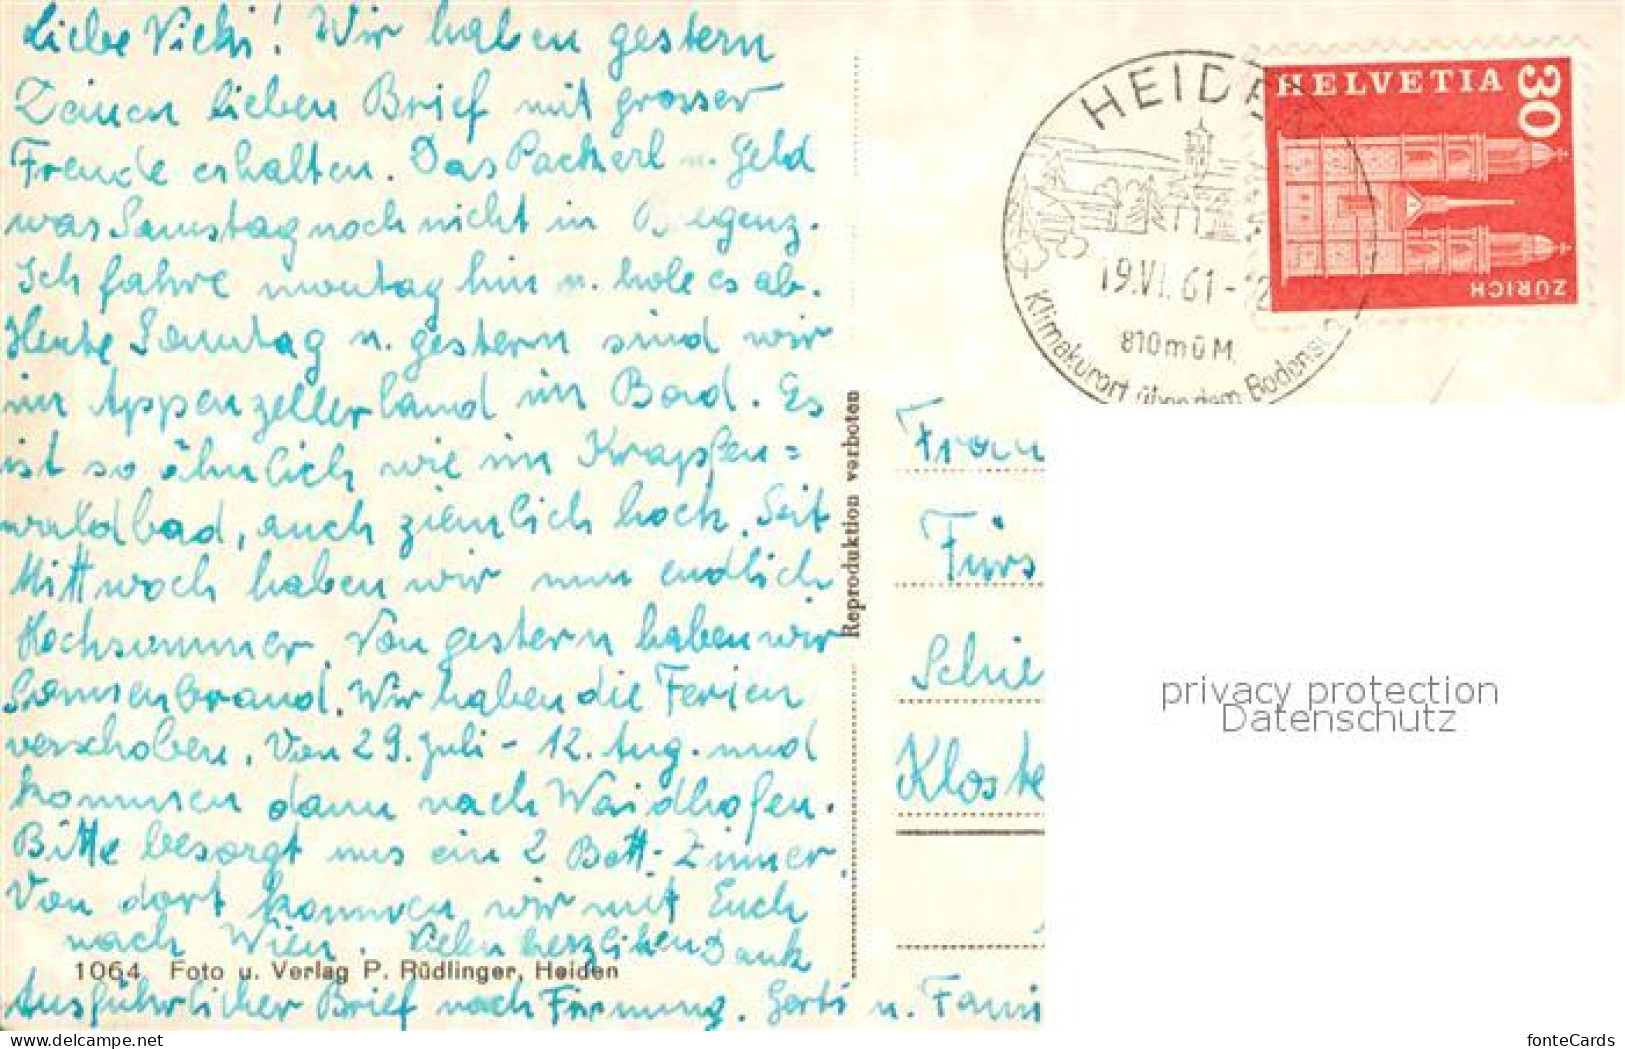 Liebe Vicki! Wir haben gestern
Deinen lieben Brief mit grosser
Freude erhalten. Das Packerl u. Geld
was Samstag noch nicht in Bregenz.
Ich fahre montag hin u. hole es ab.
Heute Sonntag u. gestern sind wir
im Appenzellerland im Bad. Es
ist so ähnlich wie im Krapfen=
waldbad, auch ziemlich hoch. Seit
Mittwoch haben wir nun endlich
Hochsommer. Von gestern haben wir
Sonnenbrand. Wir haben die Ferien
verschoben. Von 29. Juli - 12. Aug. und
kommen dann nach Waidhofen.
Bitte besorgt uns ein 2 Bett-Zimmer.
Von dort kommen wir mit Euch
nach Wien. Vielen herzlichen Dank
1064 Foto u. Verlag P. Rüdlinger, Heiden
Ausführlicher Brief nach Firmung. Gerti u. Fami
Reproduktion verboten
HEIDEN
19.VI.61-12
810 m ü M.
Klimakurort über dem Bodensee
HELVETIA
30
ZÜRICH
Frau
Fürs
Schie
Kloste
privacy protection
Datenschutz
fonteCards
delcampe.net